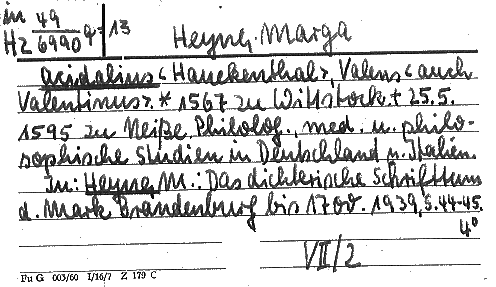 in 49
Hz 6990 q-13
Heyne, Marga
Acidalius <Hauckenthal>, Valens <auch
Valentinus>. * 1567 zu Wittstock + 25.5.
1595 zu Neiße. Philolog., med. u. philo-
sophische Studien in Deutschland u. Italien.
In: Heyne, M.: Das dichterische Schrifttum
d. Mark Brandenburg bis 1700. 1939, S. 44-45.
4°
VII/2
Fu G 003/60 I/16/7 Z 179 C